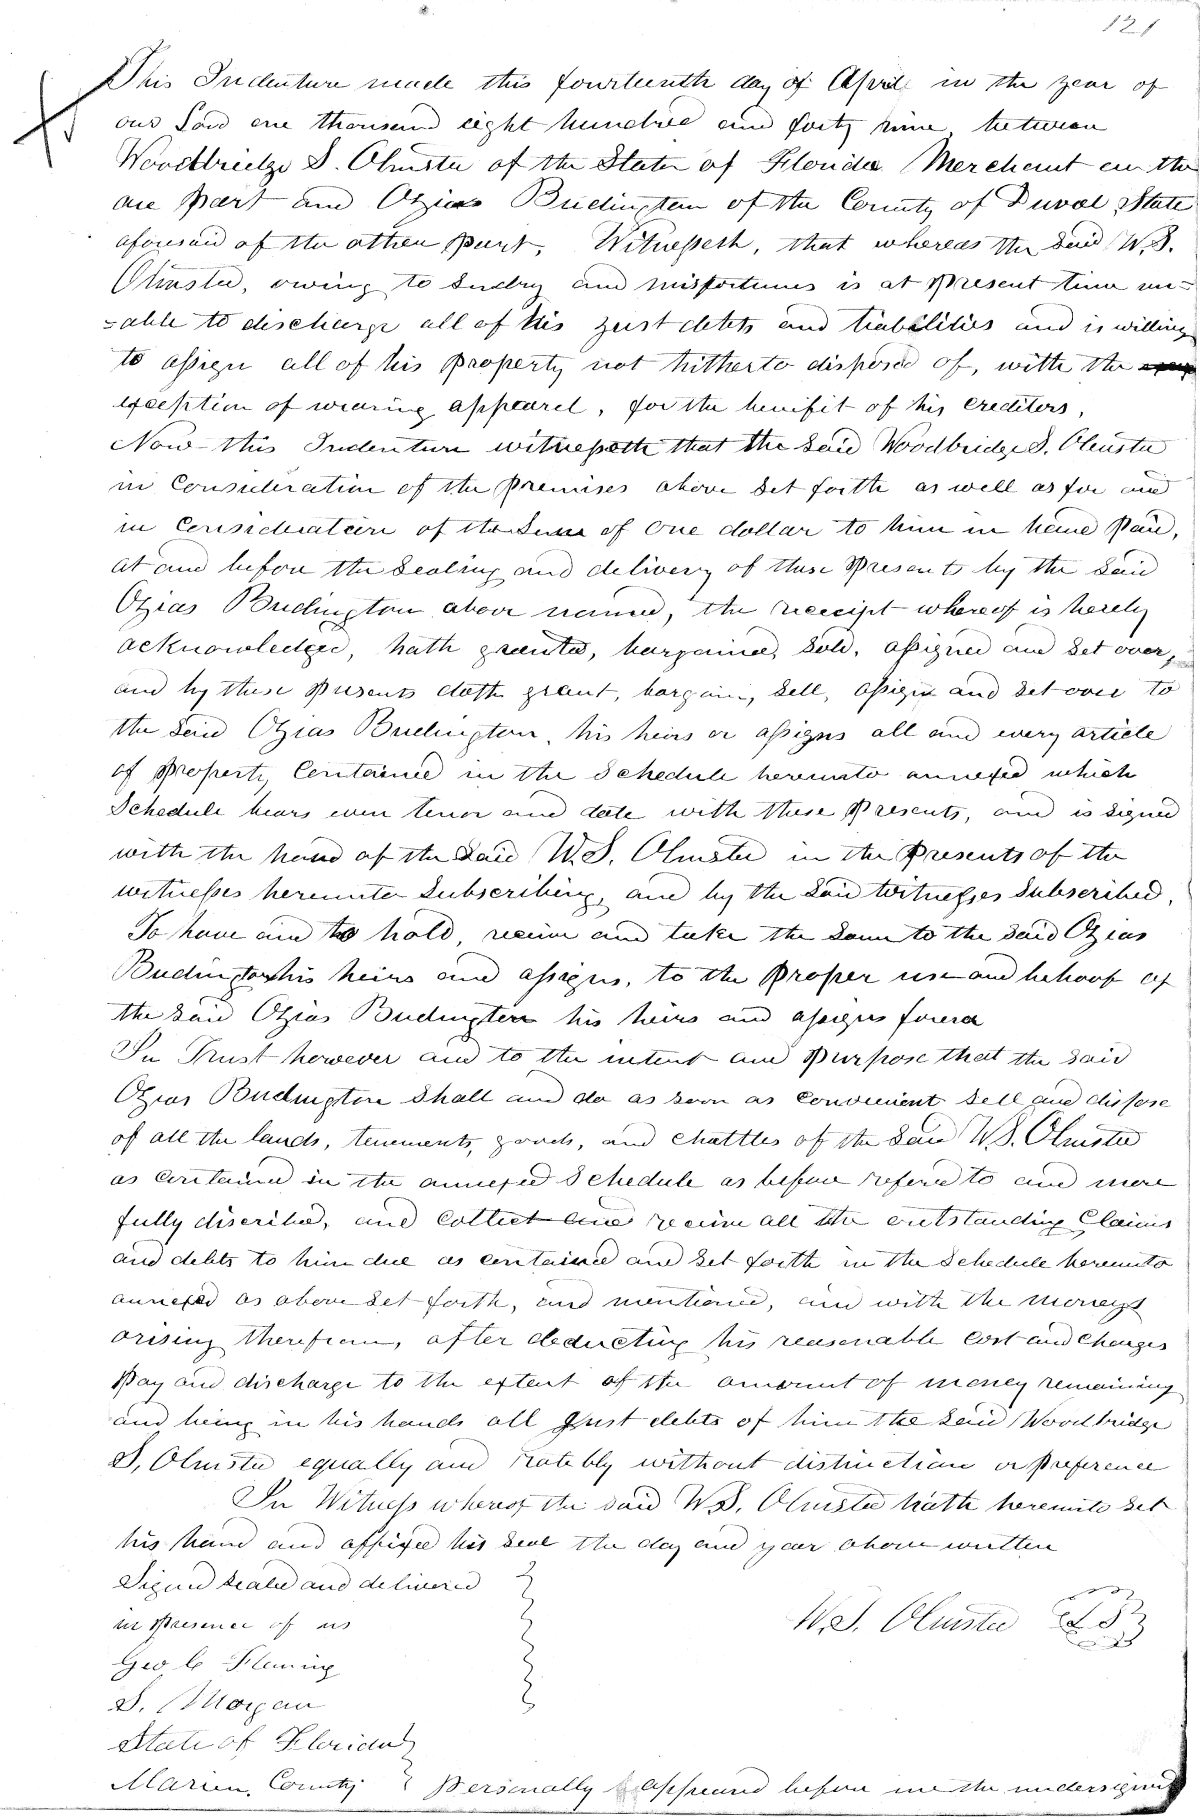 121
This Indenture made this fourteenth day of April in the year of
our Lord one thousand eight hundred and forty nine, between
Woodbridge S. Olmsted of the State of Florida Merchant on the
one Part and Ozias Budington of the County of Duval, State
aforesaid of the other part, Witnesseth, that whereas the said W.S.
Olmsted, owing to sundry and misfortunes is at present time un-
-able to discharge all of his just debts and liabilities and is willing
to assign all of his property not hitherto disposed of, with the
exception of wearing apparel, for the benifit of his creditors,
Now this Indenture witnesseth that the said Woodbridge S. Olmsted
in Consideration of the premises above set forth as well as for and
in Consideration of the Sum of one dollar to him in hand paid,
at and before the Sealing and delivery of these presents by the said
Ozias Budington above named, the receipt whereof is hereby
acknowledged, hath granted, bargained, sold, assigned and set over,
and by these presents doth grant, bargain, sell, assign and set over to
the said Ozias Budington, his heirs or assigns all and every article
of property Contained in the Schedule hereunto annexed which
Schedule bears even tenor and date with these presents, and is signed
with the hand of the said W.S. Olmsted in the presents of the
witnesses hereunto subscribing, and by the said witnesses subscribed,
To have and to hold, receive and take the same to the said Ozias
Budington his heirs and assigns, to the proper use and behoof of
the said Ozias Budington his heirs and assigns forever
In Trust however and to the intent and purpose that the said
Ozias Budington shall and do as soon as convenient sell and dispose
of all the lands, tenements, goods, and chattles of the said W.S. Olmsted
as contained in the annexed Schedule as before refered to and more
fully discribed, and collect and receive all the outstanding Claims
and debts to him due as contained and set forth in the Schedule hereunto
annexed as above set forth, and mentioned, and with the moneys
arising therefrom, after deducting his reasonable cost and charges
pay and discharge to the extent of the amount of money remaining
and being in his hands all just debts of him the said Woodbridge
S, Olmsted equally and ratebly without distinction or preference
In Witness whereof the said W.S. Olmsted hath hereunto set
his hand and affixed his seal the day and year above written
Signed sealed and delivered
in presence of us
W.S. Olmsted LS
Geo C Fleming
S. Morgan
State of Florida
Marion County } personally appeared before me the undersigned